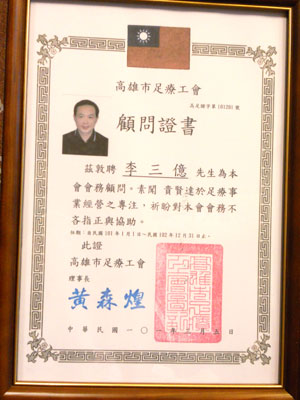 高雄市足療工會
高足療字第(0120)號
顧問證書
茲敦聘 李三億 先生為本
會會務顧問。素聞 貴賢達於足療事
業經營之專注,祈盼對本會會務不
吝指正與協助。
任期:自民國101年1月1日~民國102年12月31日止。
此證
高雄市足療工會
理事長
黃森煌